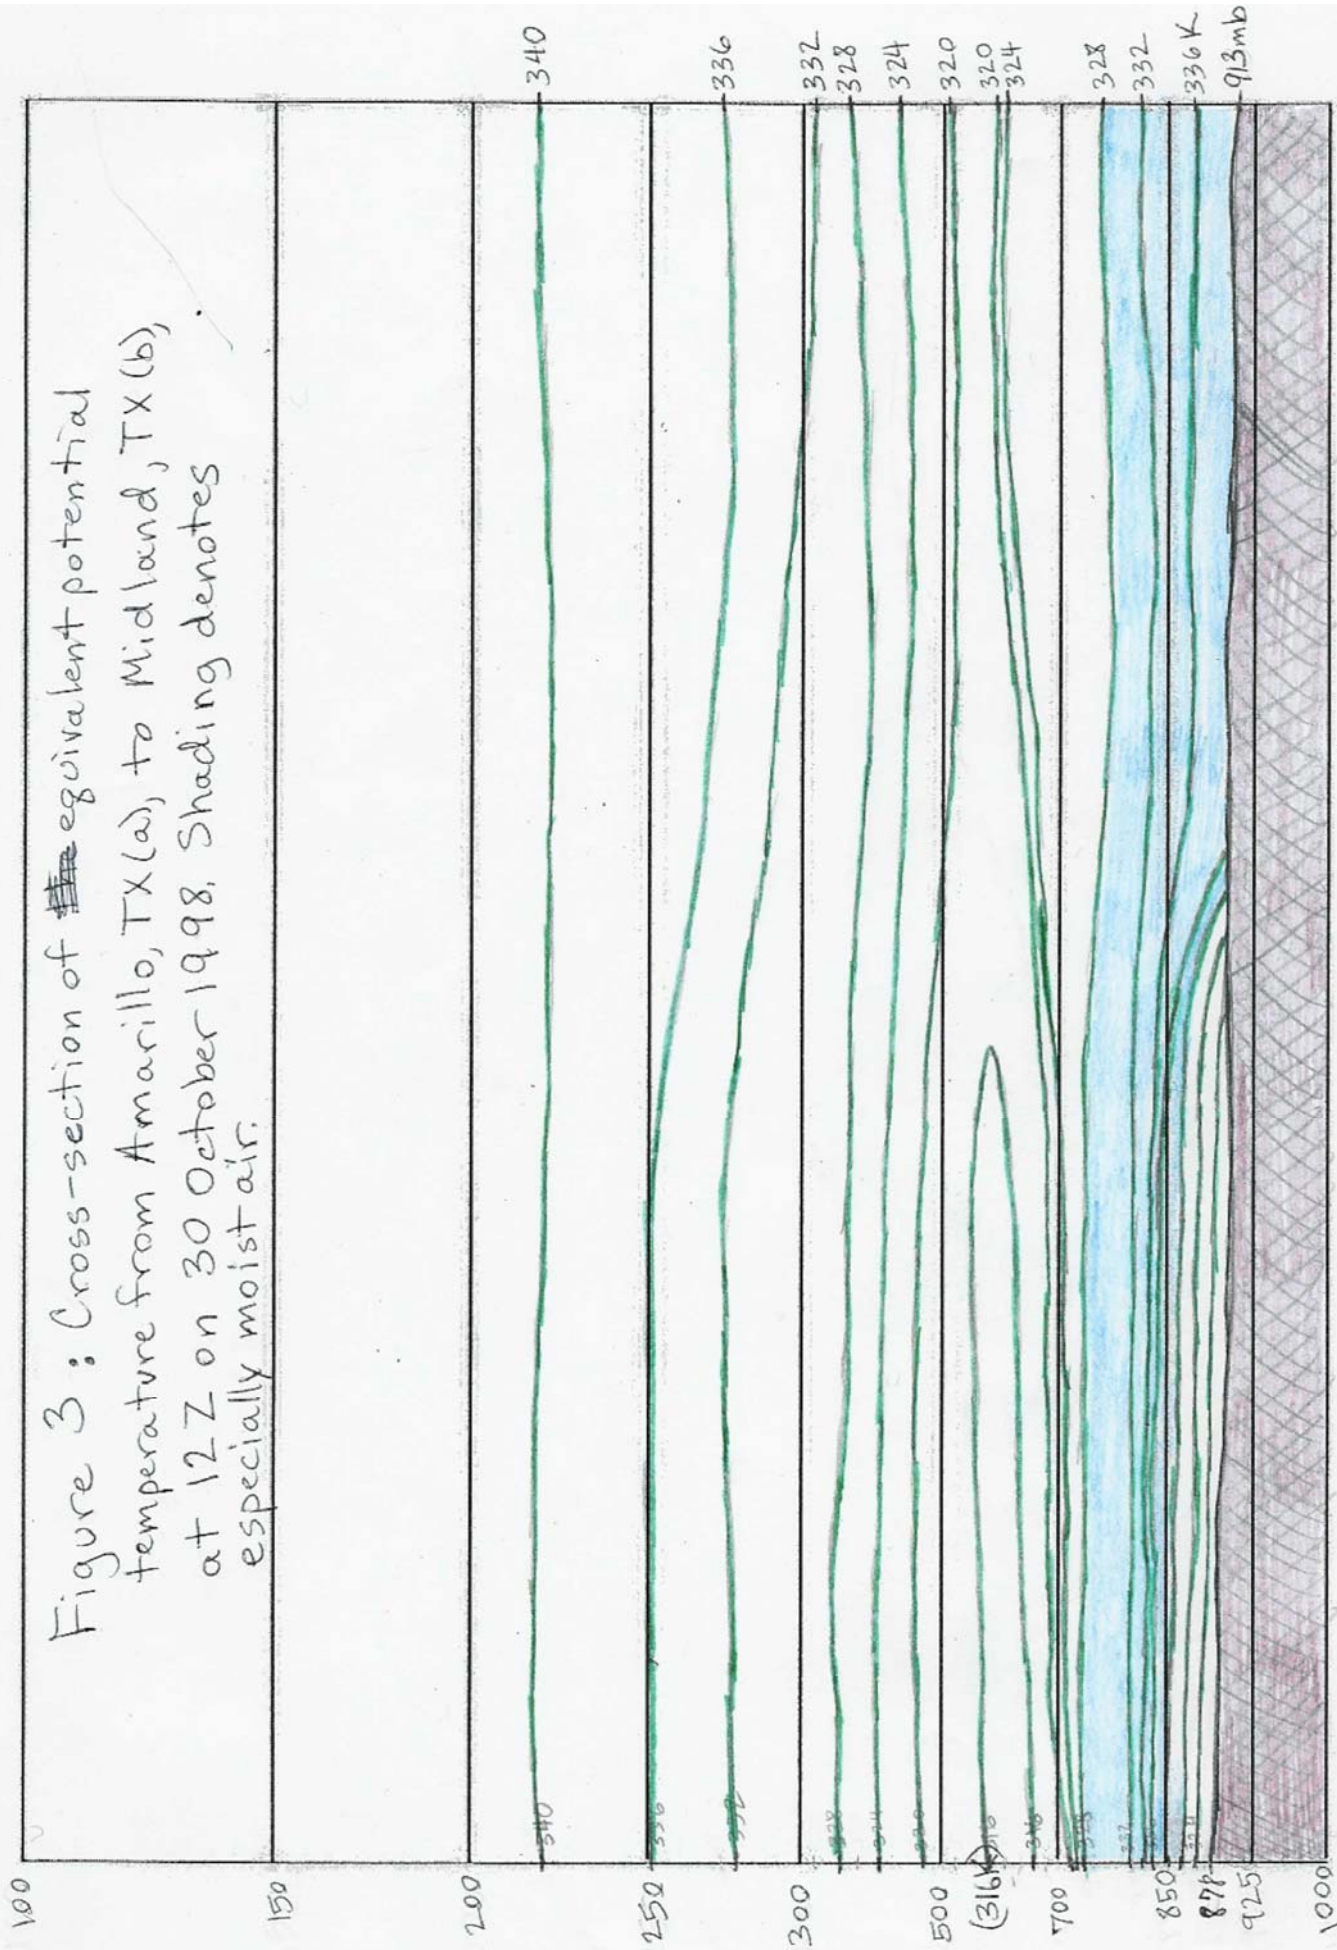 Figure 3 : Cross-section of equivalent potential
temperature from Amarillo, TX (a), to Midland, TX (b),
at 12Z on 30 October 1998. Shading denotes
especially moist air.
100
150
200
250
300
500
(316K)
700
850
925
1000
340
336
332
328
324
320
320
324
328
332
336K
913mb
340
336
332
328
324
320
316
316
328
332
324